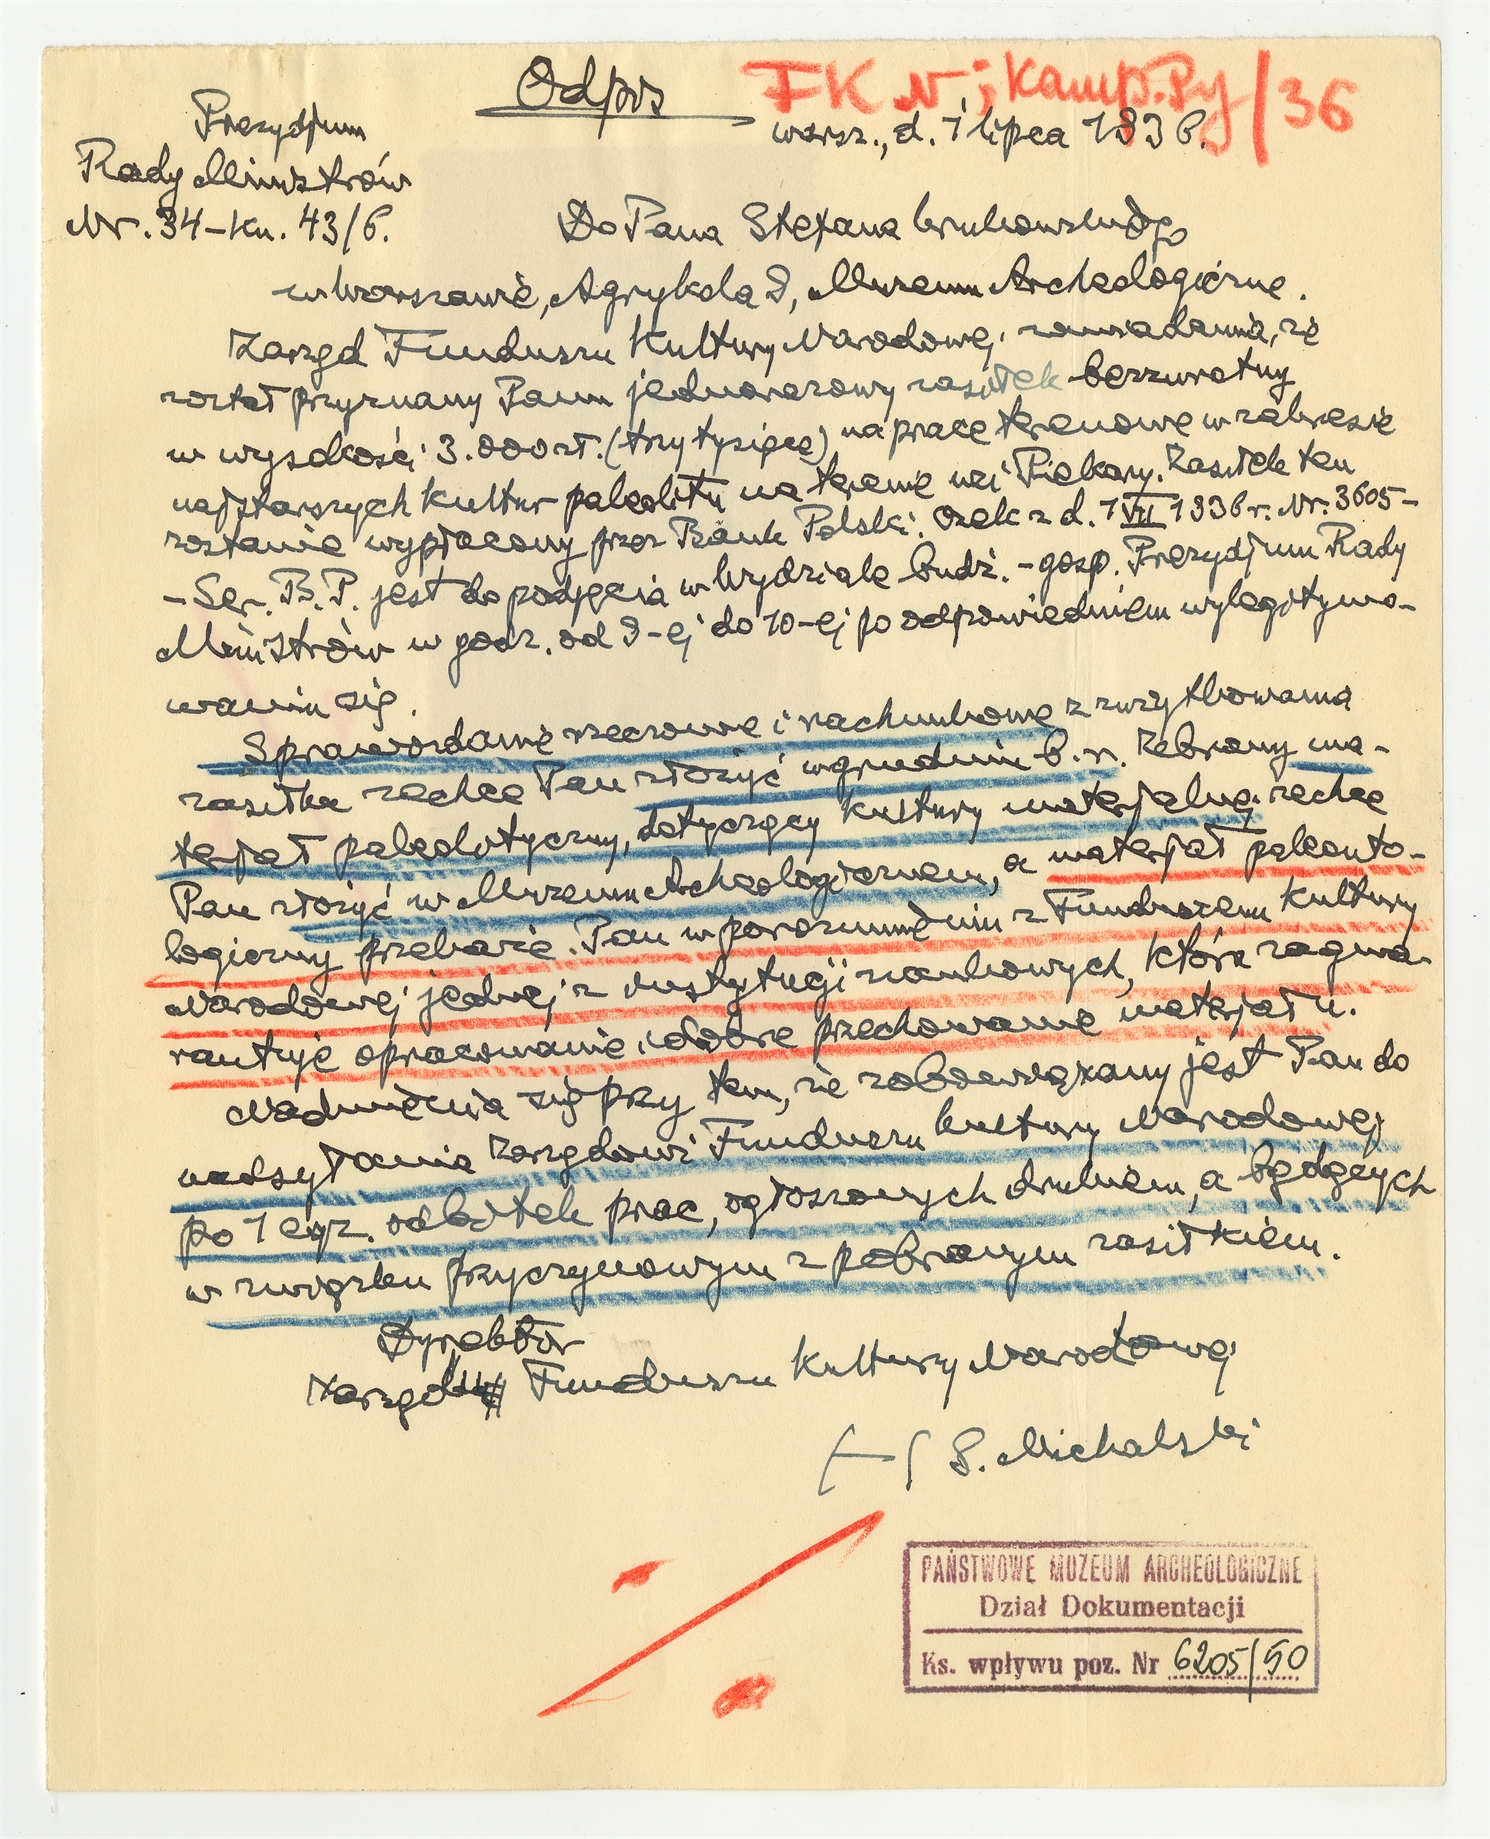 Odpis
FKN; Kamp. Py/36
Prezydjum
Rady Ministrów
Nr. 34-Kn. 43/6.
warsz., d. 1 lipca 1936.
Do Pana Stefana Krukowskiego
w Warszawie, Agrykola 9, Muzeum Archeologiczne.
Zarząd Funduszu Kultury Narodowej zawiadamia, że
został przyznany Panu jednorazowy zasiłek bezzwrotny
w wysokości 3.000 zł. (trzy tysiące) na prace terenowe w zakresie
najstarszych kultur paleolitu na terenie wsi Piekary. Zasiłek ten
zostanie wypłacony przez Bank Polski. Czek z d. 1 VII 1936 r. Nr. 3605-
- Ser. B.P. jest do podjęcia w Wydziale budż.-gosp. Prezydjum Rady
Ministrów w godz. od 9-ej do 10-ej po odpowiedniem wylegitymo-
waniu się.
Sprawozdanie rzeczowe i rachunkowe z zużytkowania
zasiłku zechce Pan złożyć w grudniu b.r. Zebrany ma-
terjał paleolityczny, dotyczący kultury materjalnej zechce
Pan złożyć w Muzeum Archeologicznem, a materjał paleonto-
logiczny przekaże Pan w porozumieniu z Funduszem Kultury
Narodowej jednej z instytucji naukowych, które zagwa-
rantuje opracowanie i dobre przechowanie materjału.
Nadmienia się przy tem, że zobowiązany jest Pan do
nadsyłania Zarządowi Funduszu Kultury Narodowej
po 1 egz. odbitek prac, ogłoszonych drukiem, a będących
w związku przyczynowym z pobranym zasiłkiem.
Dyrektor
Funduszu Kultury Narodowej
(-) S. Michalski
PAŃSTWOWE MUZEUM ARCHEOLOGICZNE
Dział Dokumentacji
Ks. wpływu poz. Nr 6205/50